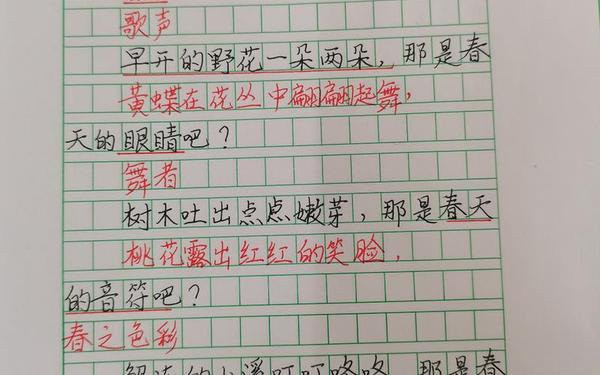 歌声
早开的野花一朵两朵，那是春
黄蝶在花丛中翩翩起舞，
天的眼睛吧？
舞者
树木吐出点点嫩芽，那是春天
桃花露出红红的笑脸，
的音符吧？
春之色彩
解冻的小溪叮叮咚咚，那是春